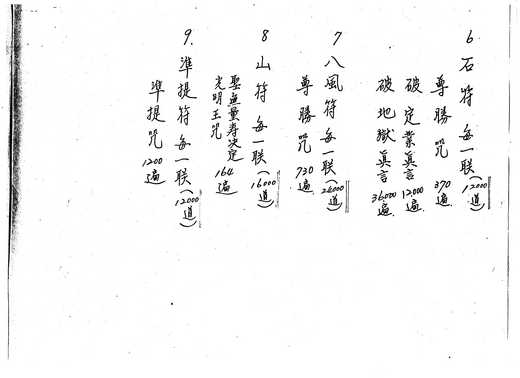 6 石符 每一联(12000道)
尊勝咒 370遍.
破定業真言 12,000遍.
破地獄真言 36,000遍.
7 八風符 每一联(24000道)
尊勝咒 730遍.
8 山符 每一联(16,000道)
聖無量寿决定
光明王咒 164遍
9. 準提符 每一联(12000道)
準提咒 1200遍